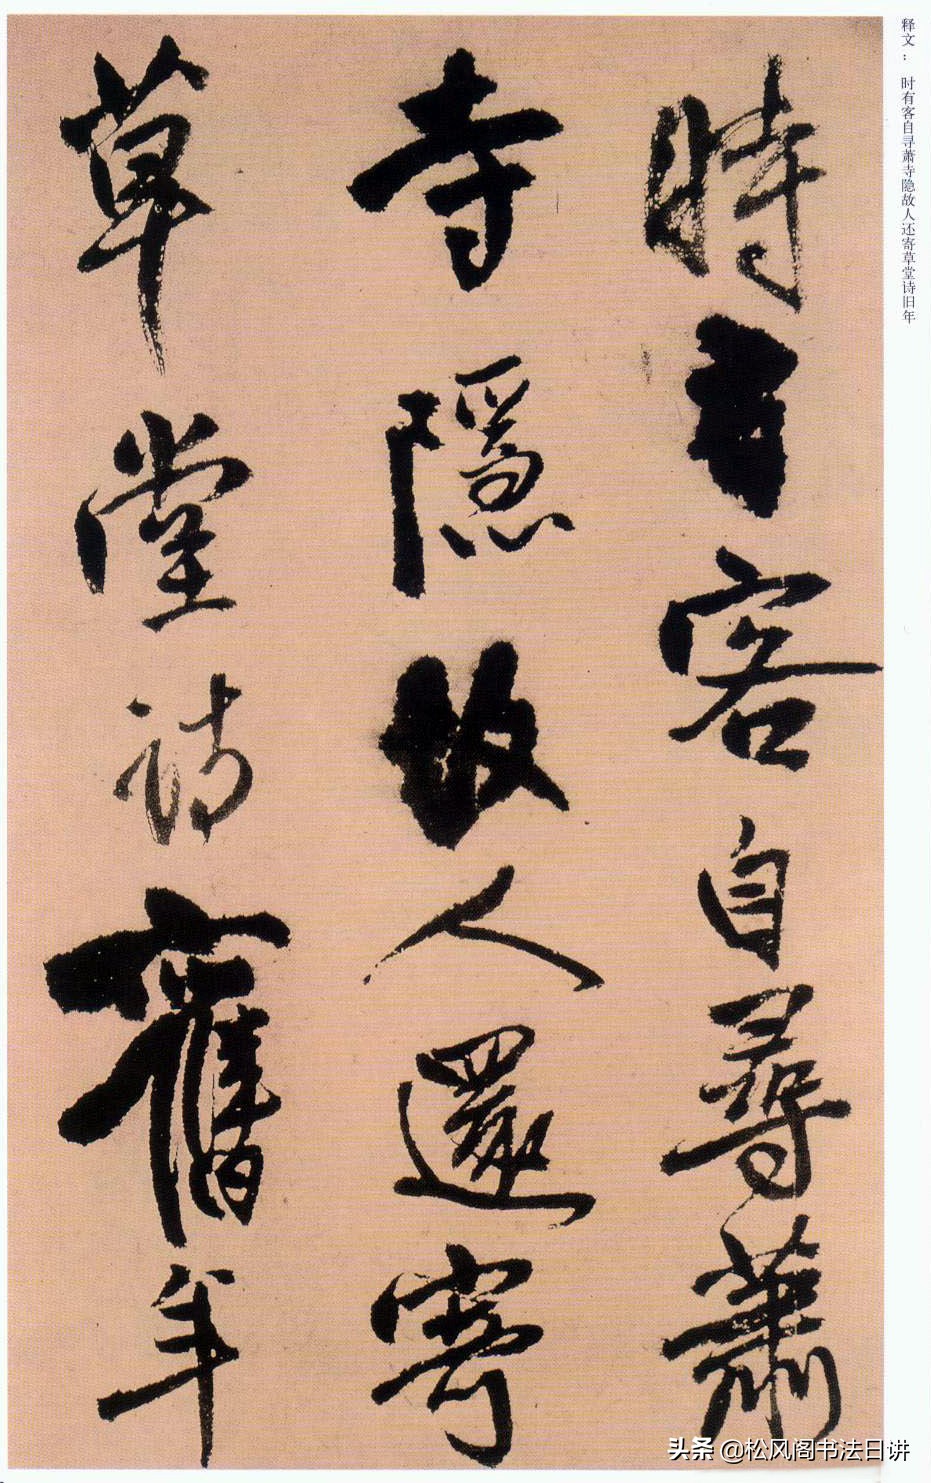 释文： 时有客自寻萧寺隐故人还寄草堂诗旧年
時有客自尋蕭
寺隱故人還寄
草堂詩舊年
头条 @松风阁书法日讲